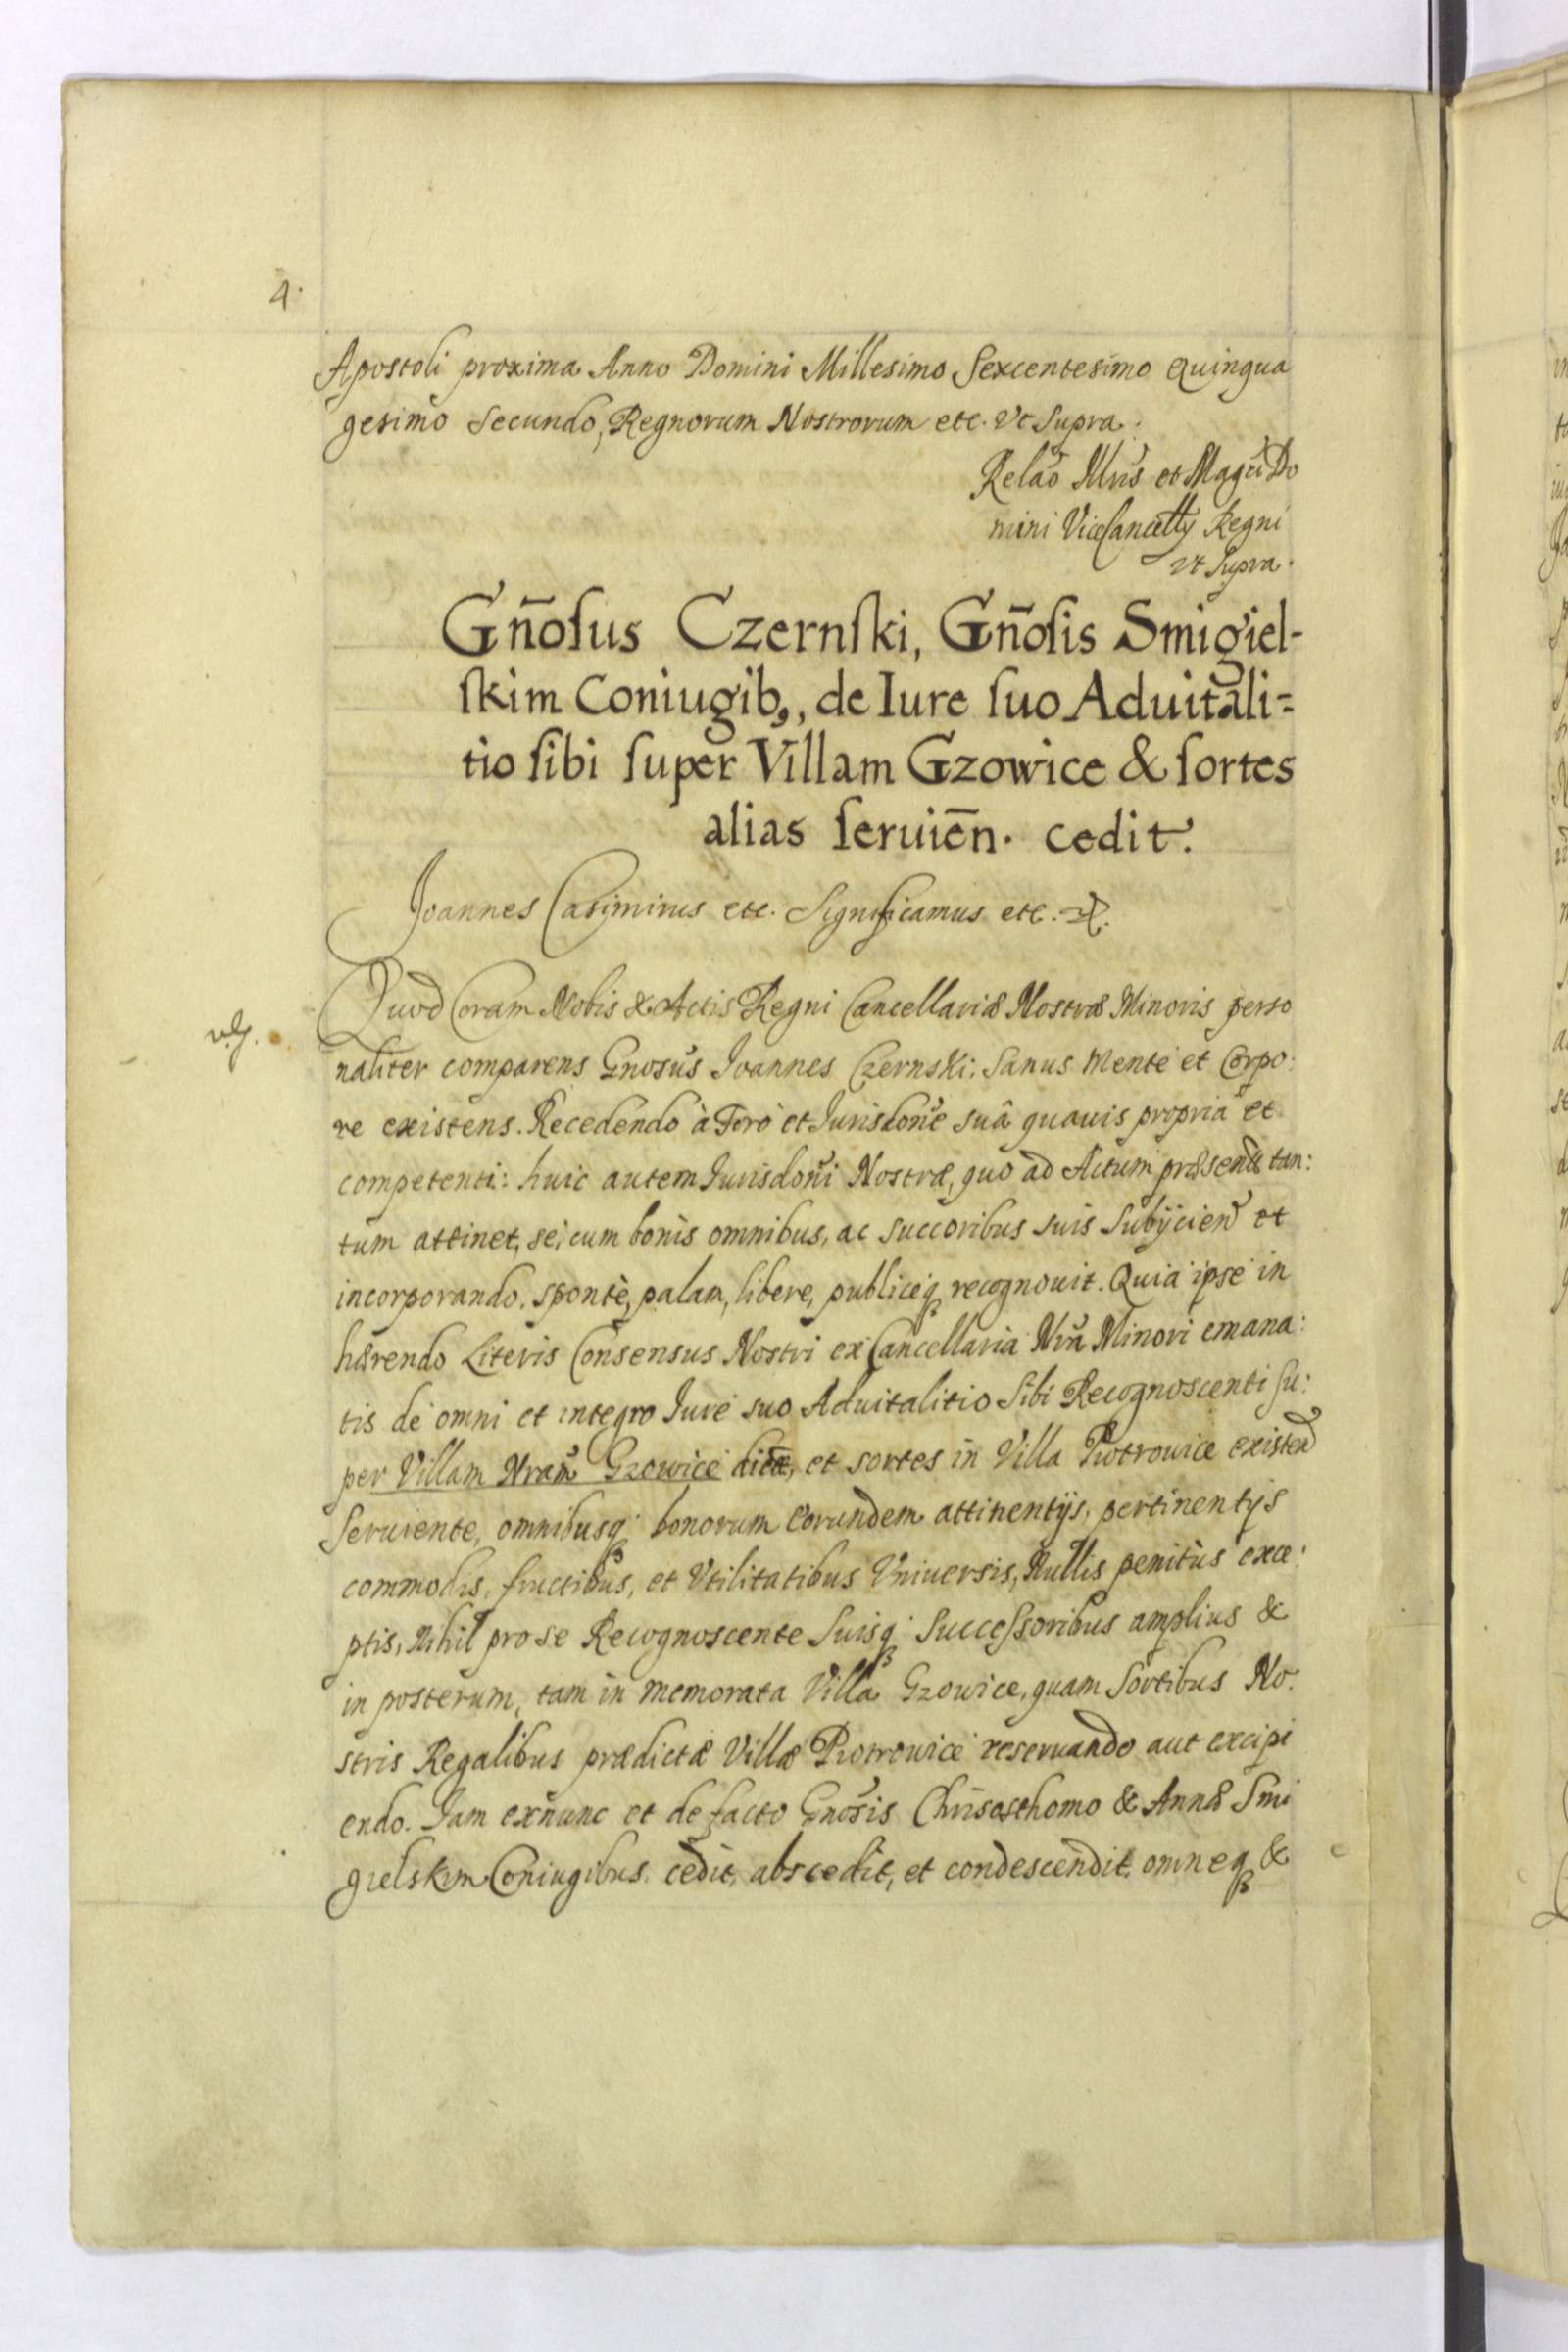 4.
Apostoli proxima Anno Domini Millesimo Sexcentesimo Quinqua
gesimo Secundo, Regnorum Nostrorum etc. Vt Supra.
Relaõ Illris et Magci Do
mini ViceCancellÿ Regni
vt Supra.
Gñoſus Czernſki, Gñoſis Smigiel-
ſkim Coniugib9, de Iure ſuo Aduitali-
tio ſibi ſuper Villam Gzowice & ſortes
alias ſeruieñ. cedit.
Joannes Casimirus etc. Significamus etc.
Quod Coram Nobis & Actis Regni Cancellariæ Nostræ Minoris perso
naliter comparens Gnosus Joannes Czernski: Sanus Mente et Corpo:
re existens. Recedendo à Foro et Jurisdone suâ quauis propria et
competenti: huic autem Jurisdoni Nostræ, quo ad Actum præsentem tan:
tum attinet, se, cum bonis omnibus, ac succoribus suis Subÿciend et
incorporando. sponte, palam, libere, publiceq recognouit. Quia ipse in
hærendo Literis Consensus Nostri ex Cancellaria Nra Minori emana:
tis de omni et integro Jure suo Aduitalitio Sibi Recognoscenti Su:
per Villam Nram Gzowice dictã, et sortes in Villa Piotrowice existen
Seruiente, omnibusq bonorum eorundem attinentÿs, pertinentÿs
commodis, fructibus, et Vtilitatibus Vniuersis, Nullis penitus exce:
ptis, Nihil pro se Recognoscente Suisq Succeſsoribus amplius &
in posterum, tam in memorata Villa Gzowice, quam Sortibus No:
stris Regalibus prædictæ Villæ Piotrowice reseruando aut excipi
endo. Jam exnunc et de facto Gnosis Chrisosthomo & Annæ Smi
gielskim Coniugibus. cedit, abscedit, et condescendit, omneq &